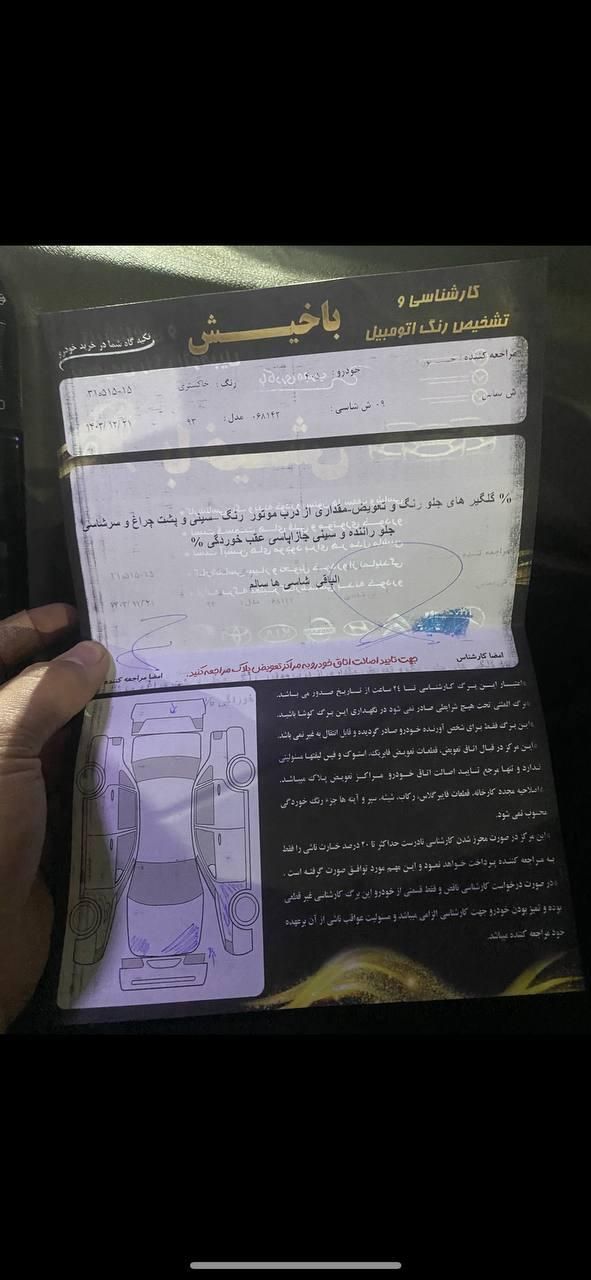 کارشناسی و
تشخیص رنگ اتومبیل
باخیش
تکیه گاه شما در خرید خودرو
مراجعه کننده :
خودرو :
رنگ : خاکستری
۳۱۵۱۵-۱۵
ش شاسی : ۰۶۸۱۴۲
مدل : ۹۳
۱۴۰۳/۱۲/۲۱
% گلگیر های جلو رنگ و تعویض-مقداری از درب موتور رنگ -سینی و پشت چراغ و سرشاسی
جلو راننده و سینی جازاپاسی عقب خوردگی %
الباقی شاسی ها سالم
امضا کارشناسی
جهت تایید اصالت اتاق خودرو به مراکز تعویض پلاک مراجعه کنید.
امضا مراجعه کننده
*اعتبار این برگ کارشناسی تا ۲۴ ساعت از تاریخ صدور می باشد.
*برگ المثنی تحت هیچ شرایطی صادر نمی شود در نگهداری این برگ کوشا باشید.
*این برگ فقط برای شخص آورنده خودرو صادر گردیده و قابل انتقال به غیر نمی باشد.
*این مرکز در قبال اتاق تعویض، قطعات تعویض فابریک، استوک و فیس لیفتها مسئولیتی
ندارد و تنها مرجع تایید اصالت اتاق خودرو مراکز تعویض پلاک میباشد.
*اصلاحیه مجدد کارخانه، قطعات فایبرگلاس، رکاب، شیشه، سپر و آینه ها جزء رنگ خوردگی
محسوب نمی شود.
*این مرکز در صورت محرز شدن کارشناسی نادرست حداکثر تا ۲۰ درصد خسارت ناشی را فقط
به مراجعه کننده پرداخت خواهد نمود و این مهم مورد توافق صورت گرفته است.
*در صورت درخواست کارشناسی ناقص و فقط قسمتی از خودرو این برگ کارشناسی غیر قطعی
بوده و تمیز بودن خودرو جهت کارشناسی الزامی میباشد و مسئولیت عواقب ناشی از آن برعهده
خود مراجعه کننده میباشد.